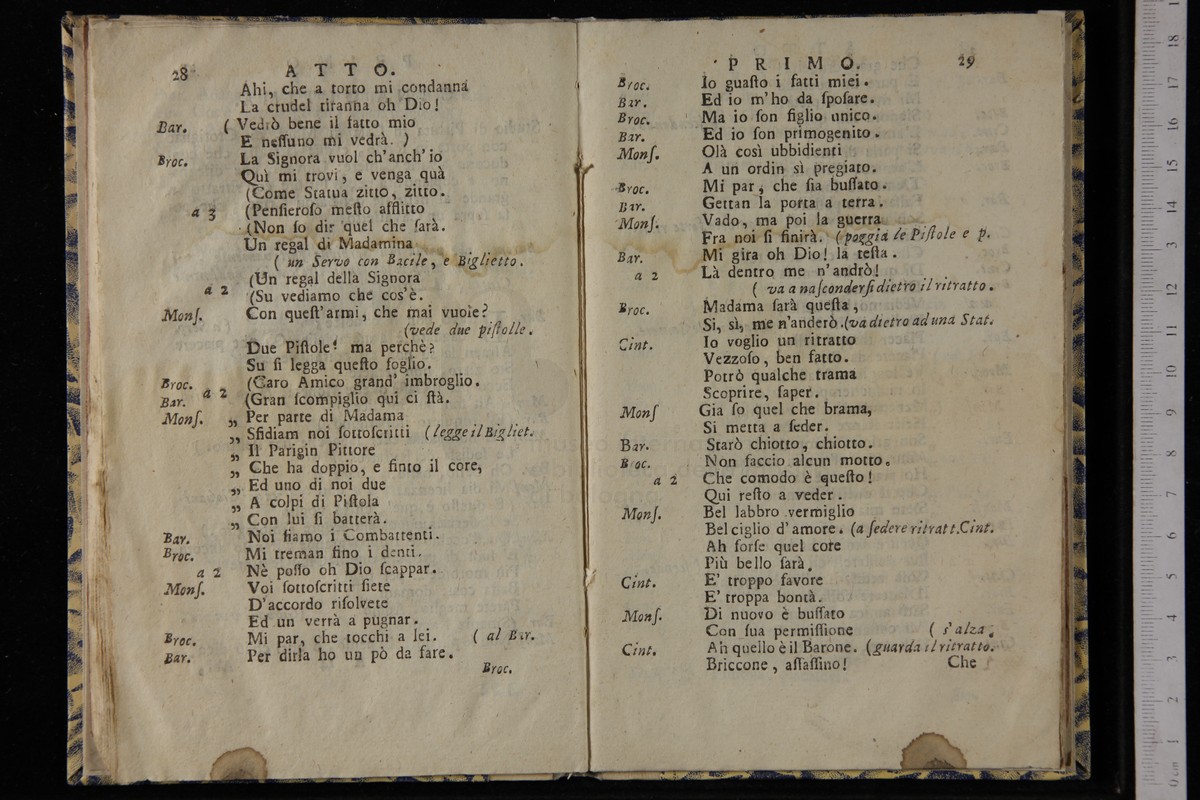 28
ATTO.
Ahi, che a torto mi condanna
La crudel tiranna oh Dio!
Bar. ( Vedrò bene il fatto mio
E neſſuno mi vedrà. )
Broc. La Signora vuol ch'anch'io
Quì mi trovi, e venga quà
(Come Statua zitto, zitto.
a 3 (Penſieroſo meſto afflitto
(Non ſo dir quel che ſarà.
Un regal di Madamina
( un Servo con Bacile, e Biglietto.
(Un regal della Signora
a 2 (Su vediamo che cos'è.
Monſ. Con queſt'armi, che mai vuole?
(vede due piſtolle.
Due Piſtole! ma perchè?
Su ſi legga queſto foglio.
Broc. (Caro Amico grand' imbroglio.
a 2
Bar. (Gran ſcompiglio quì ci ſtà.
Monſ. „ Per parte di Madama
„ Sfidiam noi ſottoſcritti (legge il Bigliet.
„ Il Parigin Pittore
„ Che ha doppio, e finto il core,
„ Ed uno di noi due
„ A colpi di Piſtola
„ Con lui ſi batterà.
Bar. Noi ſiamo i Combattenti.
Broc. Mi treman fino i denti.
a 2 Nè poſſo oh Dio ſcappar.
Monſ. Voi ſottoſcritti ſiete
D'accordo riſolvete
Ed un verrà a pugnar.
Broc. Mi par, che tocchi a lei. ( al Bar.
Bar. Per dirla ho un pò da fare.
Broc.
PRIMO.
29
Broc. Io guaſto i fatti miei.
Bar. Ed io m'ho da ſpoſare.
Broc. Ma io ſon figlio unico.
Bar. Ed io ſon primogenito.
Monſ. Olà così ubbidienti
A un ordin sì pregiato.
Broc. Mi par, che ſia buſſato.
Bar. Gettan la porta a terra.
Monſ. Vado, ma poi la guerra
Fra noi ſi finirà. (poggia le Piſtole e p.
Bar. Mi gira oh Dio! la teſta.
a 2 Là dentro me n'andrò!
( va a naſconderſi dietro il ritratto.
Broc. Madama ſarà queſta,
Si, sì, me n'anderò. (va dietro ad una Stat.
Cint. Io voglio un ritratto
Vezzoſo, ben fatto.
Potrò qualche trama
Scoprire, ſaper.
Monſ Gia ſo quel che brama,
Si metta a ſeder.
Bar. Starò chiotto, chiotto.
Broc. Non faccio alcun motto.
a 2 Che comodo è queſto!
Qui reſto a veder.
Monſ. Bel labbro vermiglio
Bel ciglio d'amore. (a ſedere ritratt. Cint.
Ah forſe quel core
Più bello ſarà.
Cint. E' troppo favore
E' troppa bontà.
Monſ. Di nuovo è buſſato
Con ſua permiſſione ( s'alza.
Cint. Ah quello è il Barone. (guarda il ritratto.
Briccone, aſſaſſino!
Che